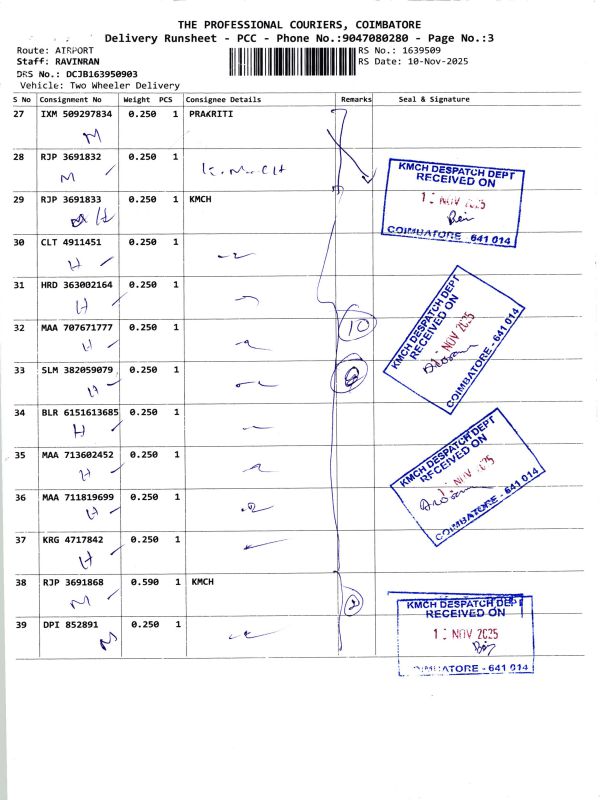 THE PROFESSIONAL COURIERS, COIMBATORE
Delivery Runsheet - PCC - Phone No.:9047080280 - Page No.:3
Route: AIRPORT
RS No.: 1639509
Staff: RAVINRAN
RS Date: 10-Nov-2025
DRS No.: DCJB163950903
Vehicle: Two Wheeler Delivery
S No Consignment No Weight PCS Consignee Details Remarks Seal & Signature
27 IXM 509297834 0.250 1 PRAKRITI
M
28 RJP 3691832 0.250 1 K.M.CH
M
29 RJP 3691833 0.250 1 KMCH
H
30 CLT 4911451 0.250 1
H
31 HRD 363002164 0.250 1
H
32 MAA 707671777 0.250 1 10
H
33 SLM 382059079 0.250 1
H
34 BLR 6151613685 0.250 1
H
35 MAA 713602452 0.250 1
H
36 MAA 711819699 0.250 1
H
37 KRG 4717842 0.250 1
H
38 RJP 3691868 0.590 1 KMCH
M 2
39 DPI 852891 0.250 1
M
KMCH DESPATCH DEPT
RECEIVED ON
NOV 2025
COIMBATORE - 641 014
KMCH DESPATCH DEPT
RECEIVED ON
NOV 2025
COIMBATORE - 641 014
KMCH DESPATCH DEPT
RECEIVED ON
NOV 2025
COIMBATORE - 641 014
KMCH DESPATCH DEPT
RECEIVED ON
NOV 2025
COIMBATORE - 641 014